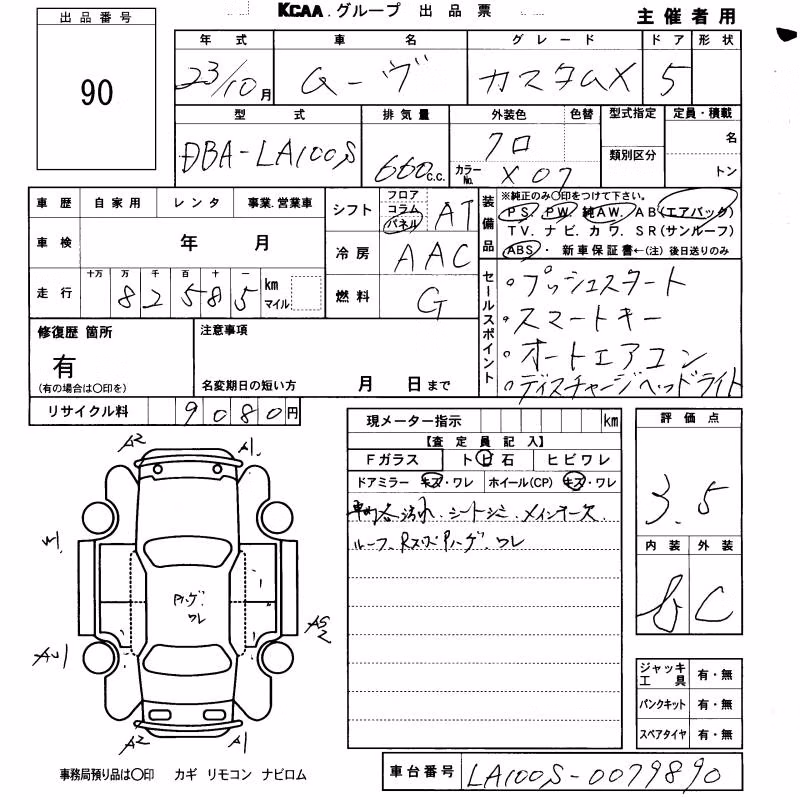 KCAA.グループ 出品票
主催者用
出品番号
90
年式 車名 グレード ドア 形状
23/10月 ムーヴ カスタムX 5
型式 排気量 外装色 色替 型式指定 定員・積載
DBA-LA100S 660c.c. クロ 名
カラーNo. X07 類別区分 トン
車歴 自家用 レンタ 事業.営業車
シフト フロア コラム パネル AT
車検 年 月
冷房 AAC
走行 十万 万 千 百 十 一
82585 km マイル
燃料 G
装備品 ※純正のみ○印をつけて下さい。
PS. PW. 純AW. AB(エアバック)
TV. ナビ. カワ. SR(サンルーフ)
ABS ・ 新車保証書←(注) 後日送りのみ
セールスポイント
・プッシュスタート
・スマートキー
・オートエアコン
・ディスチャージヘッドライト
修復歴 箇所
有
(有の場合は○印を)
注意事項
名変期日の短い方 月 日まで
リサイクル料 9080円
現メーター指示 km
【査定員記入】
Fガラス トビ石 ヒビワレ
ドアミラー キズ・ワレ ホイール(CP) キズ・ワレ
車内 汚れ. シートシミ. メインキー欠
ルーフ. Rスポ ワレ
評価点
3.5
内装 外装
C
A2 A1
ワレ
A2 A1
ジャッキ工具 有・無
パンクキット 有・無
スペアタイヤ 有・無
事務局預り品は○印 カギ リモコン ナビロム
車台番号 LA100S-0079890